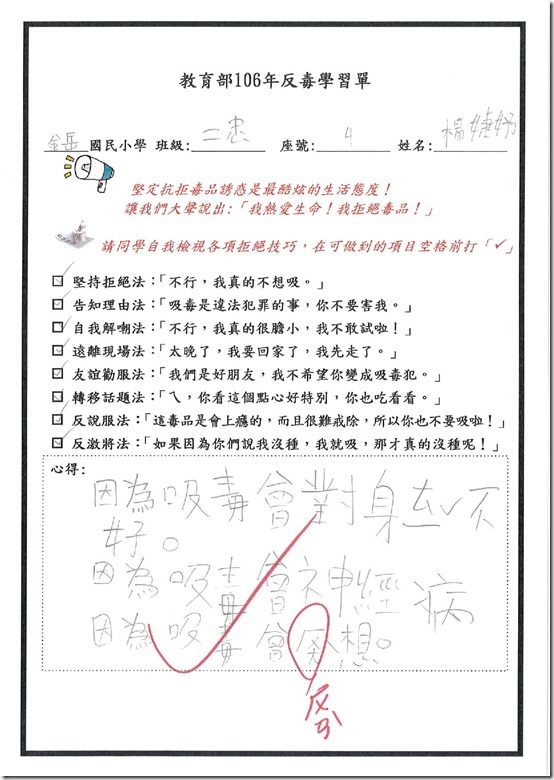 教育部106年反毒學習單
金岳國民小學 班級:二忠 座號:4 姓名:楊婕妤
堅定抗拒毒品誘惑是最酷炫的生活態度!
讓我們大聲說出:「我熱愛生命!我拒絕毒品!」
請同學自我檢視各項拒絕技巧,在可做到的項目空格前打「✓」
☑ 堅持拒絕法:「不行,我真的不想吸。」
☑ 告知理由法:「吸毒是違法犯罪的事,你不要害我。」
☑ 自我解嘲法:「不行,我真的很膽小,我不敢試啦!」
☑ 遠離現場法:「太晚了,我要回家了,我先走了。」
☑ 友誼勸服法:「我們是好朋友,我不希望你變成吸毒犯。」
☑ 轉移話題法:「ㄟ,你看這個點心好特別,你也吃看看。」
☑ 反說服法:「這毒品是會上癮的,而且很難戒除,所以你也不要吸啦!」
☑ 反激將法:「如果因為你們說我沒種,我就吸,那才真的沒種呢!」
心得:
因為吸毒會對身ㄊㄧˇ不
好。
因為吸毒會神經病
因為吸毒會幻想。